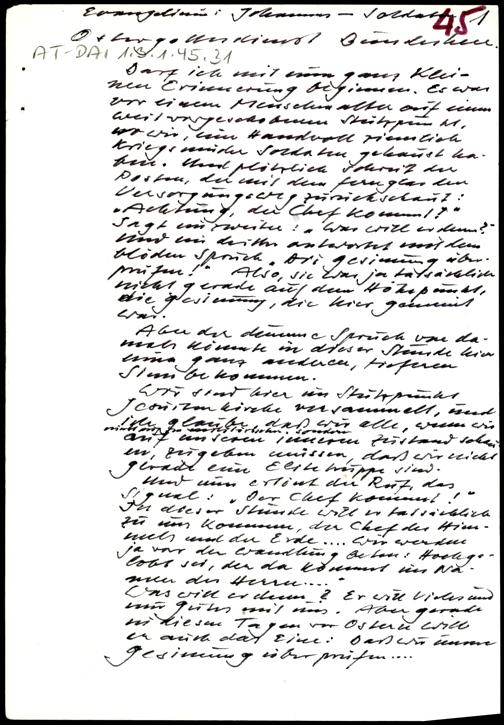 Evangelium: Johannes – Soldaten 1
45
Ostergottesdienst Bundesheer.
AT-DAI 1.3.1.45.31
Darf ich mit einer ganz klei-
nen Erinnerung beginnen. Es war
vor einem Menschenalter auf einem
weit vorgeschobenen Stützpunkt,
wo wir, eine Handvoll ziemlich
kriegsmüder Soldaten gehaust ha-
ben. Und plötzlich schreit der
Posten, der mit dem Fernglas den
Versorgungsweg zurückschaut:
"Achtung, der Chef kommt!"
Sagt ein zweiter: "Was will er denn?"
Und ein dritter antwortet mit dem
blöden Spruch "Die Gesinnung über-
prüfen!" Also, sie war ja tatsächlich
nicht gerade auf dem Höhepunkt,
die Gesinnung, die hier gemeint
war.
Aber der dumme Spruch von da-
mals könnte in dieser Stunde hier
einen ganz anderen, tieferen
Sinn bekommen.
Wir sind hier im Stützpunkt
Jesuitenkirche versammelt, und
ich glaube, daß wir alle, wenn wir
nicht militärisch, sondern
auf unseren inneren Zustand schau-
en, zugeben müssen, daß wir nicht
gerade eine Elitetruppe sind.
Und nun ertönt der Ruf, das
Signal: "Der Chef kommt!"
In dieser Stunde will er tatsächlich
zu uns kommen, der Chef des Him-
mels und der Erde.... Wir werden
ja vor der Wandlung beten: Hochge-
lobt sei, der da kommt im Na-
men des Herrn...."
Was will er denn? Er will Liebes und
nur Gutes mit uns. Aber gerade
in diesen Tagen vor Ostern will
er auch das Eine: Daß wir unsere
Gesinnung überprüfen....